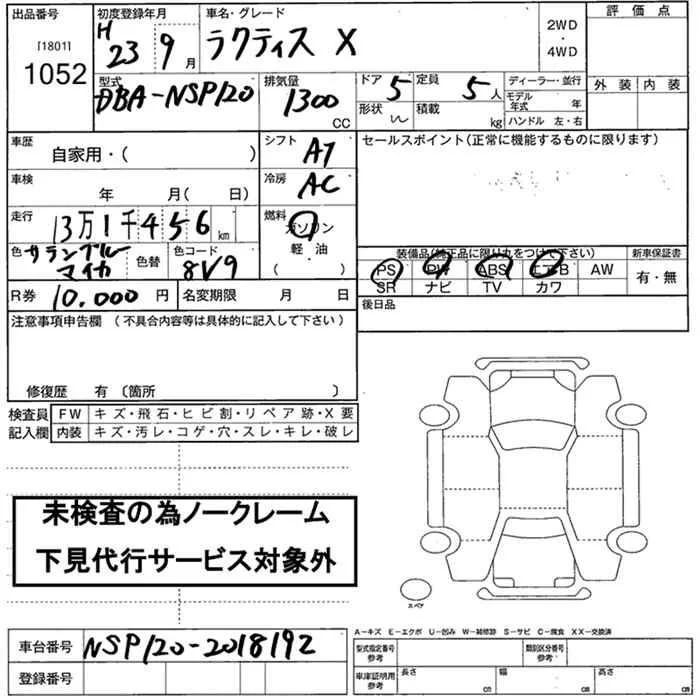 出品番号 初度登録年月 車名・グレード 評価点
[1801] H 23 年 9 月 ラクティス X 2WD・4WD
1052
型式 排気量 ドア 5 定員 5 人 ディーラー・並行 外装 内装
DBA-NSP120 1300 CC 形状 積載 kg モデル年式 年
ハンドル 左・右
車歴 自家用・( ) シフト AT セールスポイント(正常に機能するものに限ります)
車検 年 月( 日) 冷房 AC
走行 13万1千456 km 燃料 ガソリン 軽・油 ( )
色 マイカ 色替 色コード 8V9
装備品(純正品に限り丸をつけて下さい) 新車保証書
PS PW ABS エアB AW 有・無
SR ナビ TV カワ
R券 10,000 円 名変期限 月 日 後日品
注意事項申告欄 (不具合内容等は具体的に記入して下さい)
修復歴 有 〔箇所 〕
検査員 FW キズ・飛石・ヒビ割・リペア跡・X要
記入欄 内装 キズ・汚レ・コゲ・穴・スレ・キレ・破レ
未検査の為ノークレーム
下見代行サービス対象外
スペア
車台番号 NSP120-2018192
登録番号
A-キズ E-エクボ U-凹み W-補修跡 S-サビ C-腐食 XX-交換済
型式指定番号 参考 類別区分番号 参考
車庫証明用 参考 長さ cm 幅 cm 高さ cm